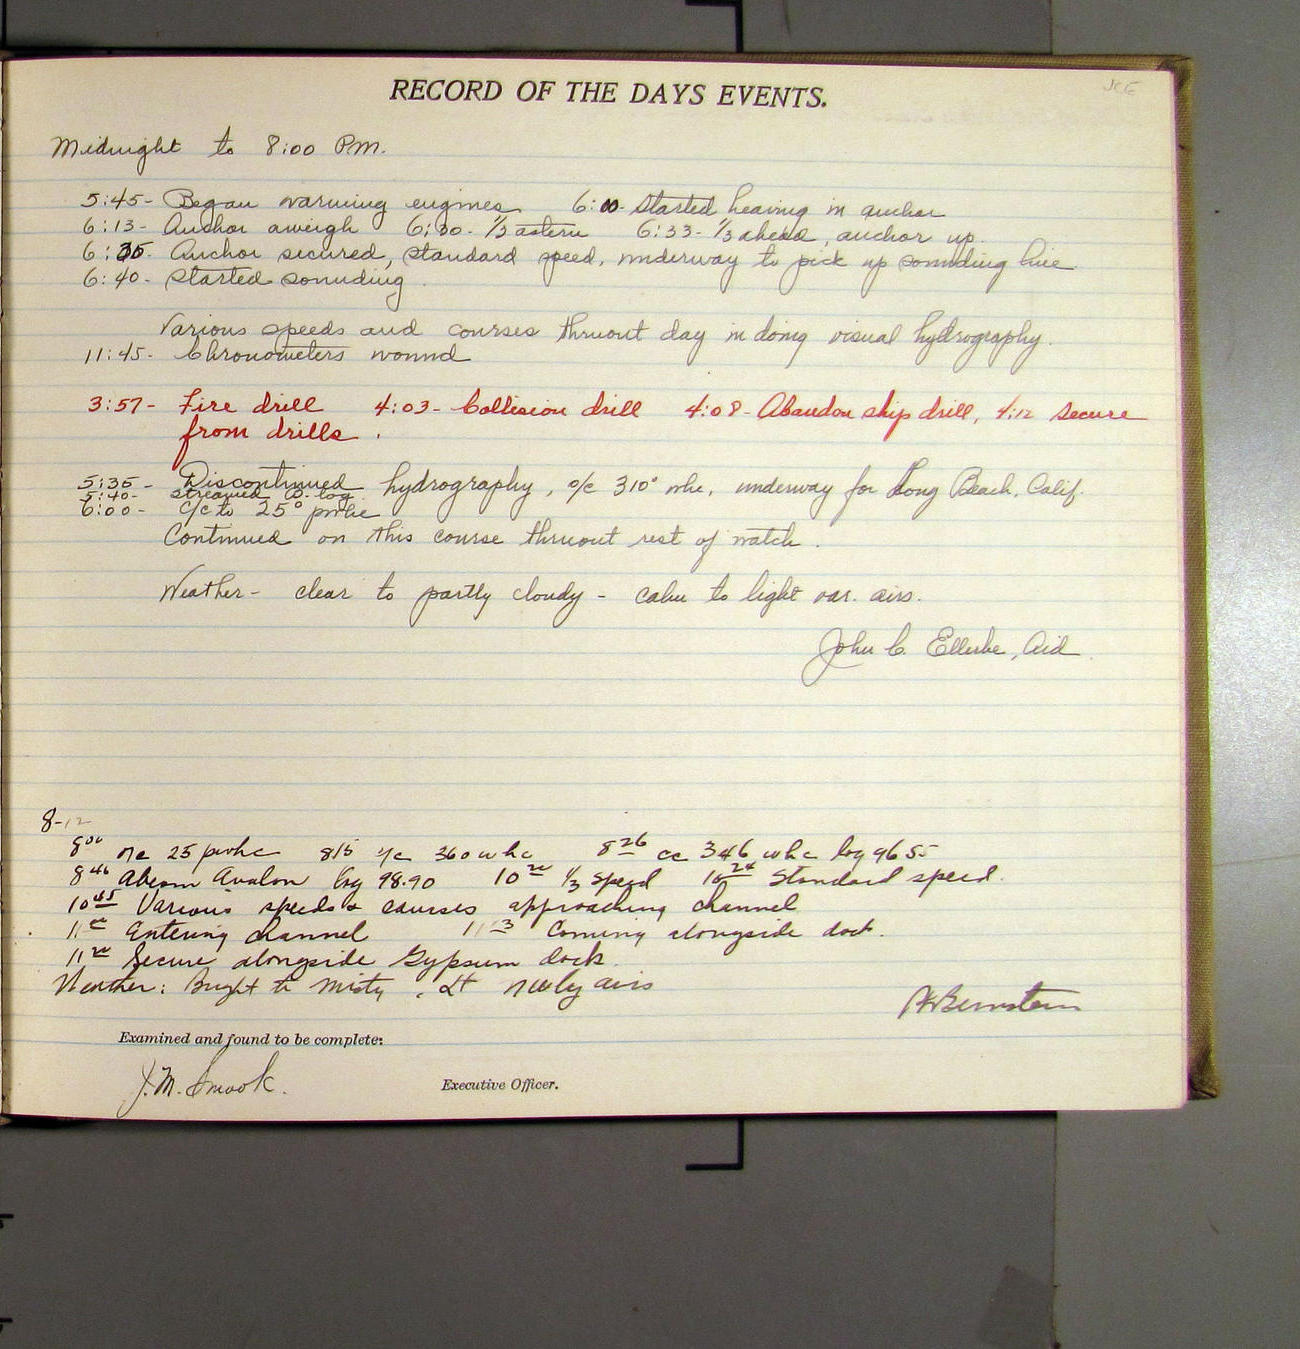 JCE
RECORD OF THE DAYS EVENTS.
Midnight to 8:00 P.M.
5:45- Began warming engines 6:00- Started heaving in anchor
6:13- Anchor aweigh 6:30- 1/3 astern 6:33- 1/3 ahead, anchor up.
6:35- Anchor secured, standard speed, underway to pick up sounding line
6:40- Started sounding.
Various speeds and courses thruout day in doing visual hydrography.
11:45- Chronometers wound
3:57- Fire drill 4:03- Collision drill 4:08- Abandon ship drill, 4:12 Secure
from drills.
5:35- Discontinued hydrography, o/c 310° whc, underway for Long Beach, Calif.
5:40- streamed log
6:00- c/c to 25° pwhc
Continued on this course thruout rest of watch.
Weather- clear to partly cloudy - calm to light var. airs.
John C. Ellerbe, Aid
8-12
8 00 o/c 25 pwhc 815 c/c 360 whc 8 26 cc 346 whc log 96 55
8 46 Abeam Avalon log 98.90 10 1/3 speed 10 24 Standard speed.
10 45 Various speeds & courses approaching channel
11 Entering channel 11 Coming alongside dock.
11 Secure alongside Gypsum dock.
Weather: Bright to misty, Lt airs
Bernstein
Examined and found to be complete:
J. M. Smook.
Executive Officer.